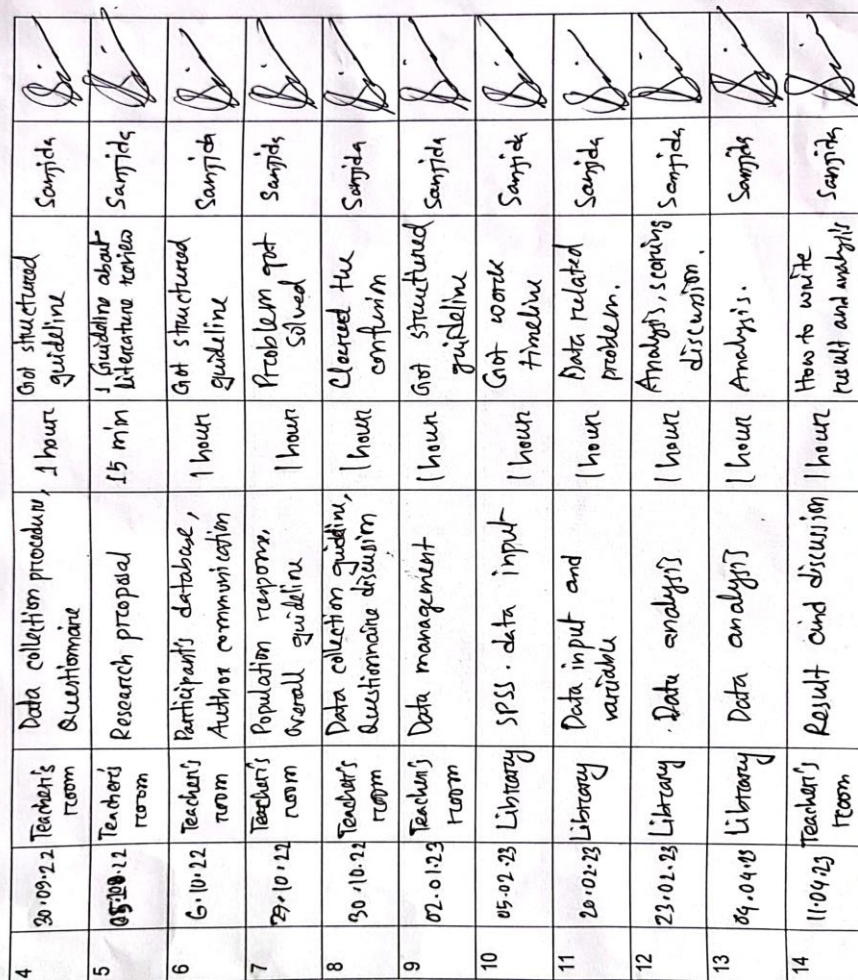 4 30.09.22 Teacher's room Data collection procedure, Questionnaire 1 hour Got structured guideline Sanjida
5 .22 Teacher's room Research proposal 15 min Guideline about Literature review Sanjida
6 6.10.22 Teacher's room Participant's database, Author communication 1 hour Got structured guideline Sanjida
7 29.10.22 Teacher's room Population response, Overall guideline 1 hour Problem got solved Sanjida
8 30.10.22 Teacher's room Data collection guidline, Questionnaire discussion 1 hour Cleared the confusion Sanjida
9 02.01.23 Teacher's room Data management 1 hour Got structured guideline Sanjida
10 05.02.23 Library SPSS data input 1 hour Got work timeline Sanjida
11 20.02.23 Library Data input and variable 1 hour Data related problem. Sanjida
12 23.02.23 Library Data analysis 1 hour Analysis, scoring discussion. Sanjida
13 04.04.23 Library Data analysis 1 hour Analysis. Sanjida
14 11.04.23 Teacher's room Result and discussion 1 hour How to write result and analysis Sanjida